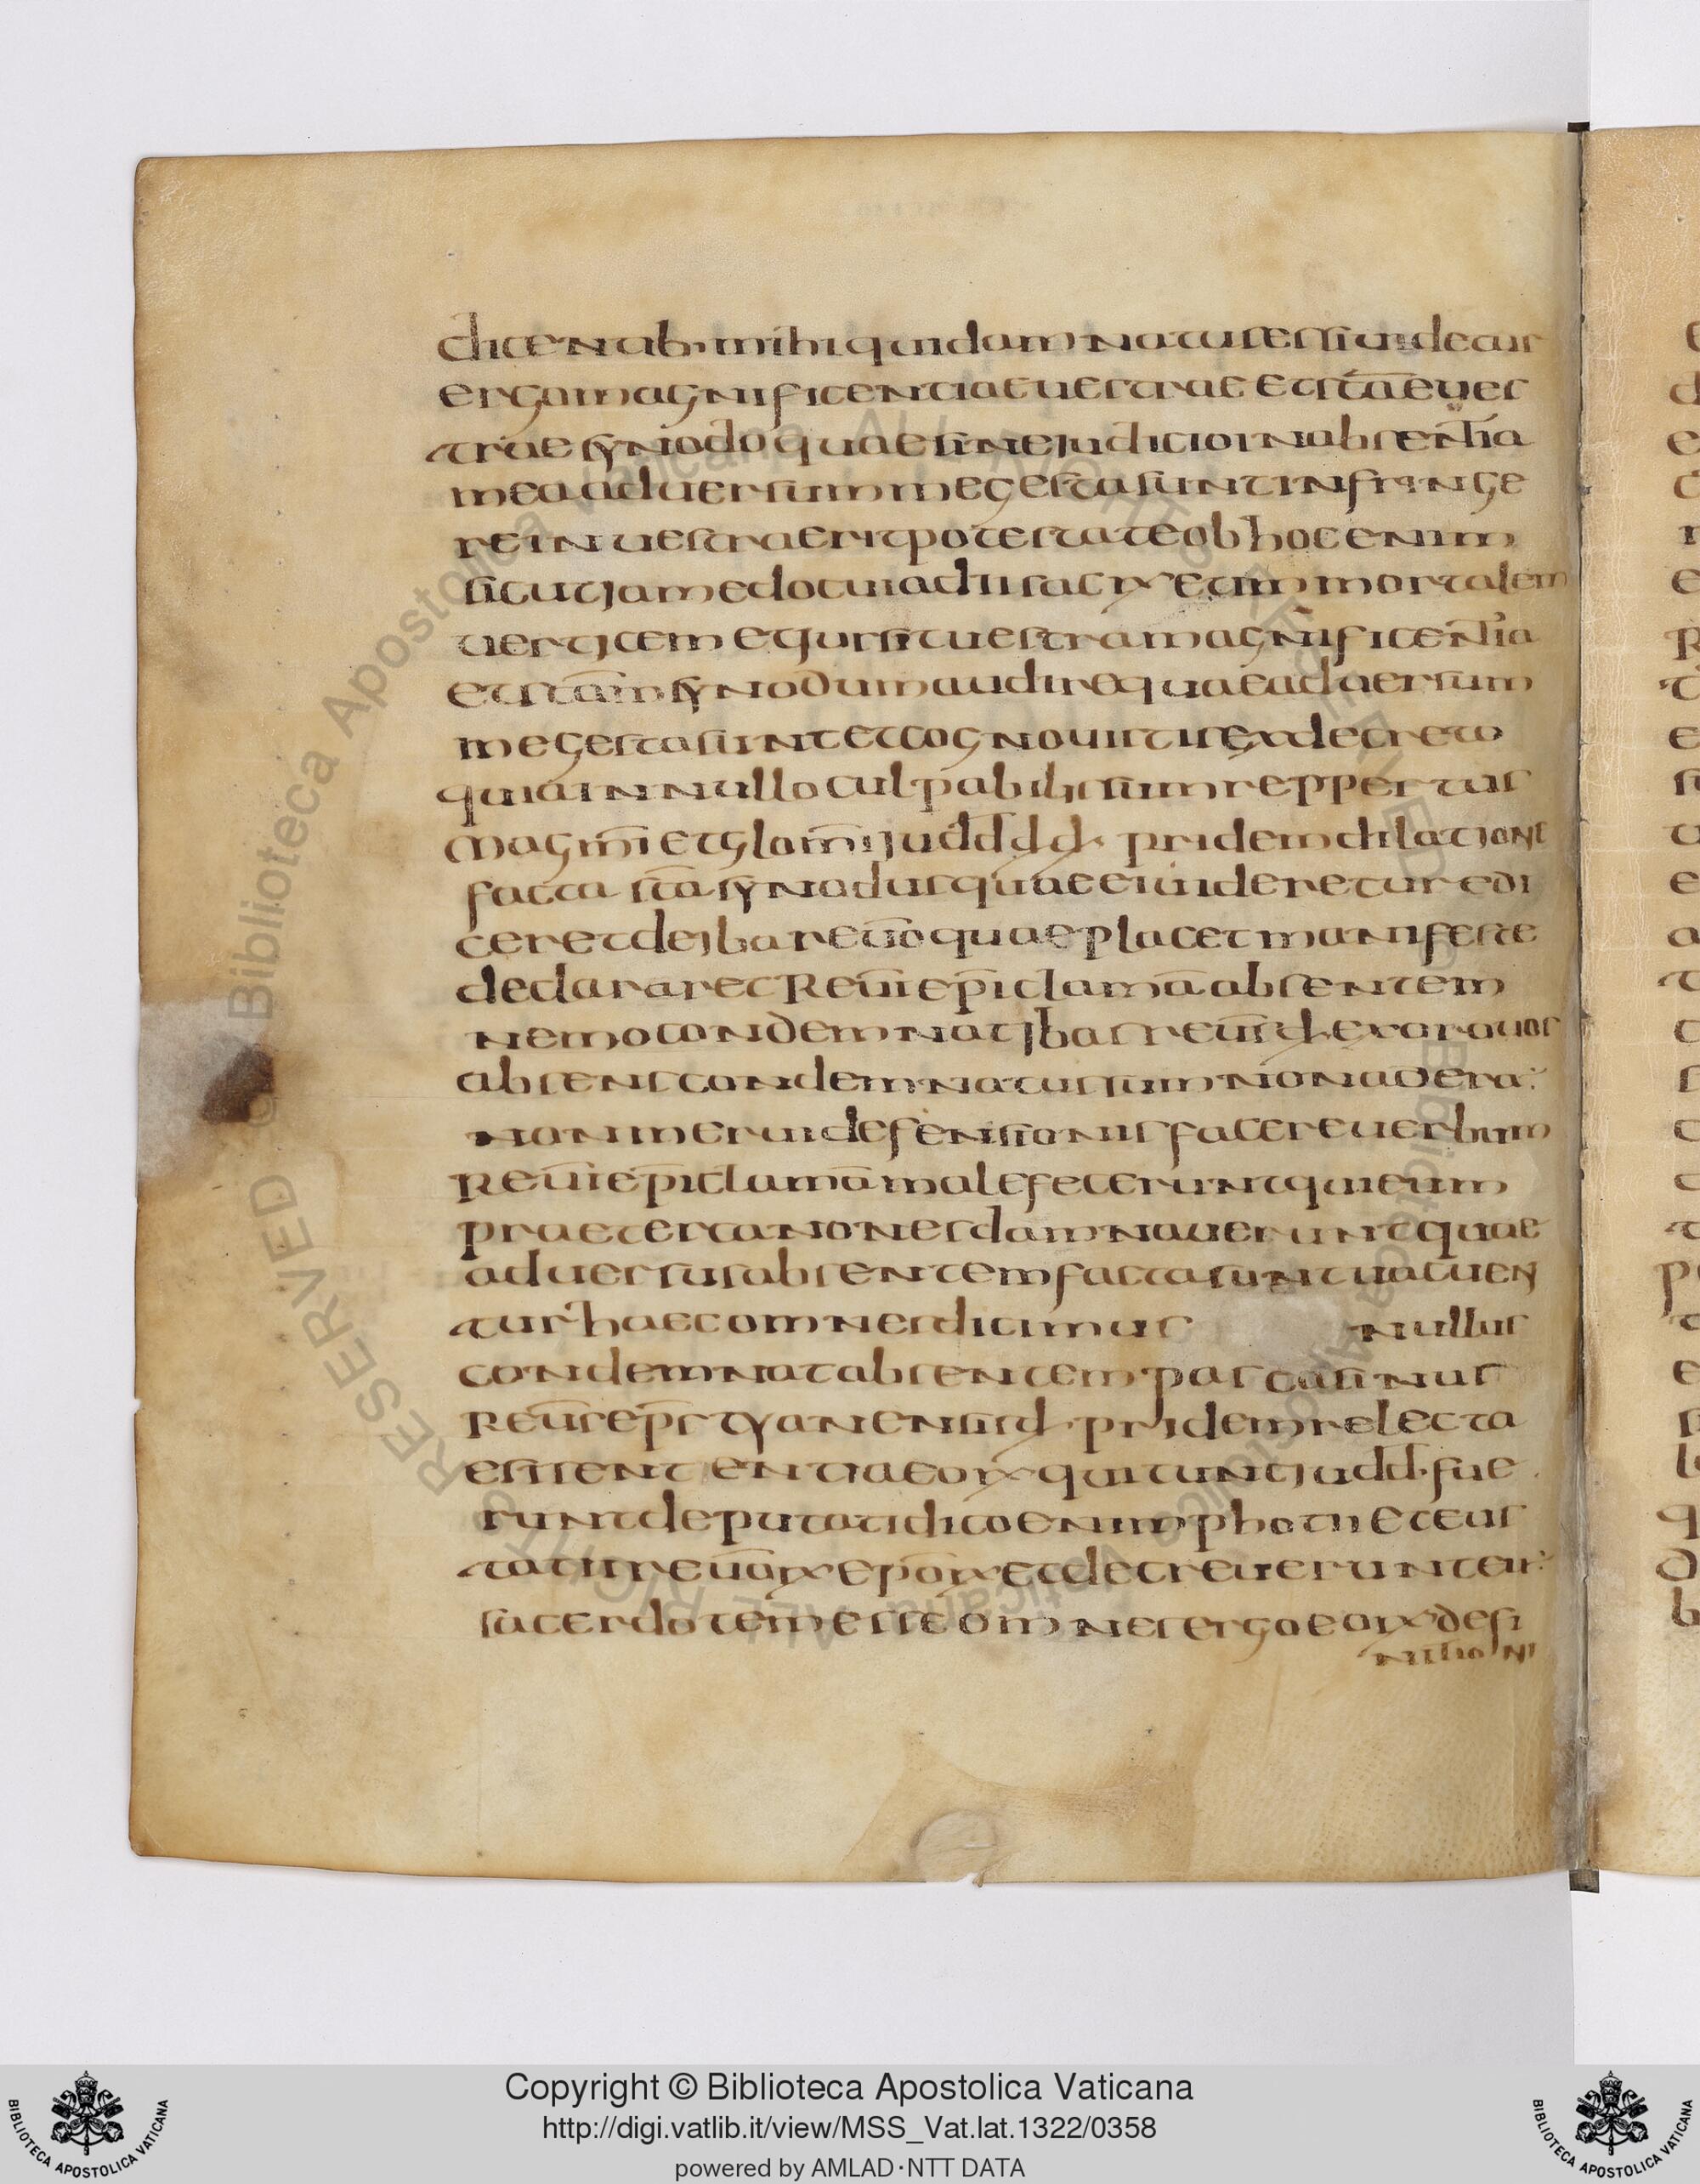 dicendb· mihi quidam natus essiuidetur
ergo magnificentiae uestrae et sc̄ae ues
trae synodo quae sine judicio in absentia
mea aduersum me gesta sunt infringe
re in uestra erit potestate ob hoc enim
sicut jam edocui adii sacrx et inmortalem
uerticem et jussit uestra magnificentia
et sc̄am synodum audire quae aduersum
me gesta sunt et cognouistis ex decreto
quia in nullo culpabilis sum reppertus
magm̄i et glom̄i judd d d· pridem dilatione
facta sc̄a synodus quae ei uideretur edi
ceret de ibare ūo quae placet manifeste
declararet Reūi ep̄i clamā absentem
nemo condemnat ibas reūs d· exorauos
absens condemnatus sum non aderā
non merui defensionis facere uerbum
Reūi ep̄i clamā male fecerunt qui eum
praeter canones damnauerunt quae
aduersus absentem facta sunt uacuen
tur haec omnes dicimus nullus
condemnat absentem pascasinus
Reūs ep̄s tyanensis d· pridem relecta
est sententia eorx qui tunc judd· fue
runt deputati dico enim photii et eus
tatii reūorx ep̄orx et decreuerunt eū
sacerdotem esse omnes ergo eorx defi
nitioni
Copyright © Biblioteca Apostolica Vaticana
http://digi.vatlib.it/view/MSS_Vat.lat.1322/0358
powered by AMLAD·NTT DATA
BIBLIOTECA APOSTOLICA VATICANA
BIBLIOTECA APOSTOLICA VATICANA